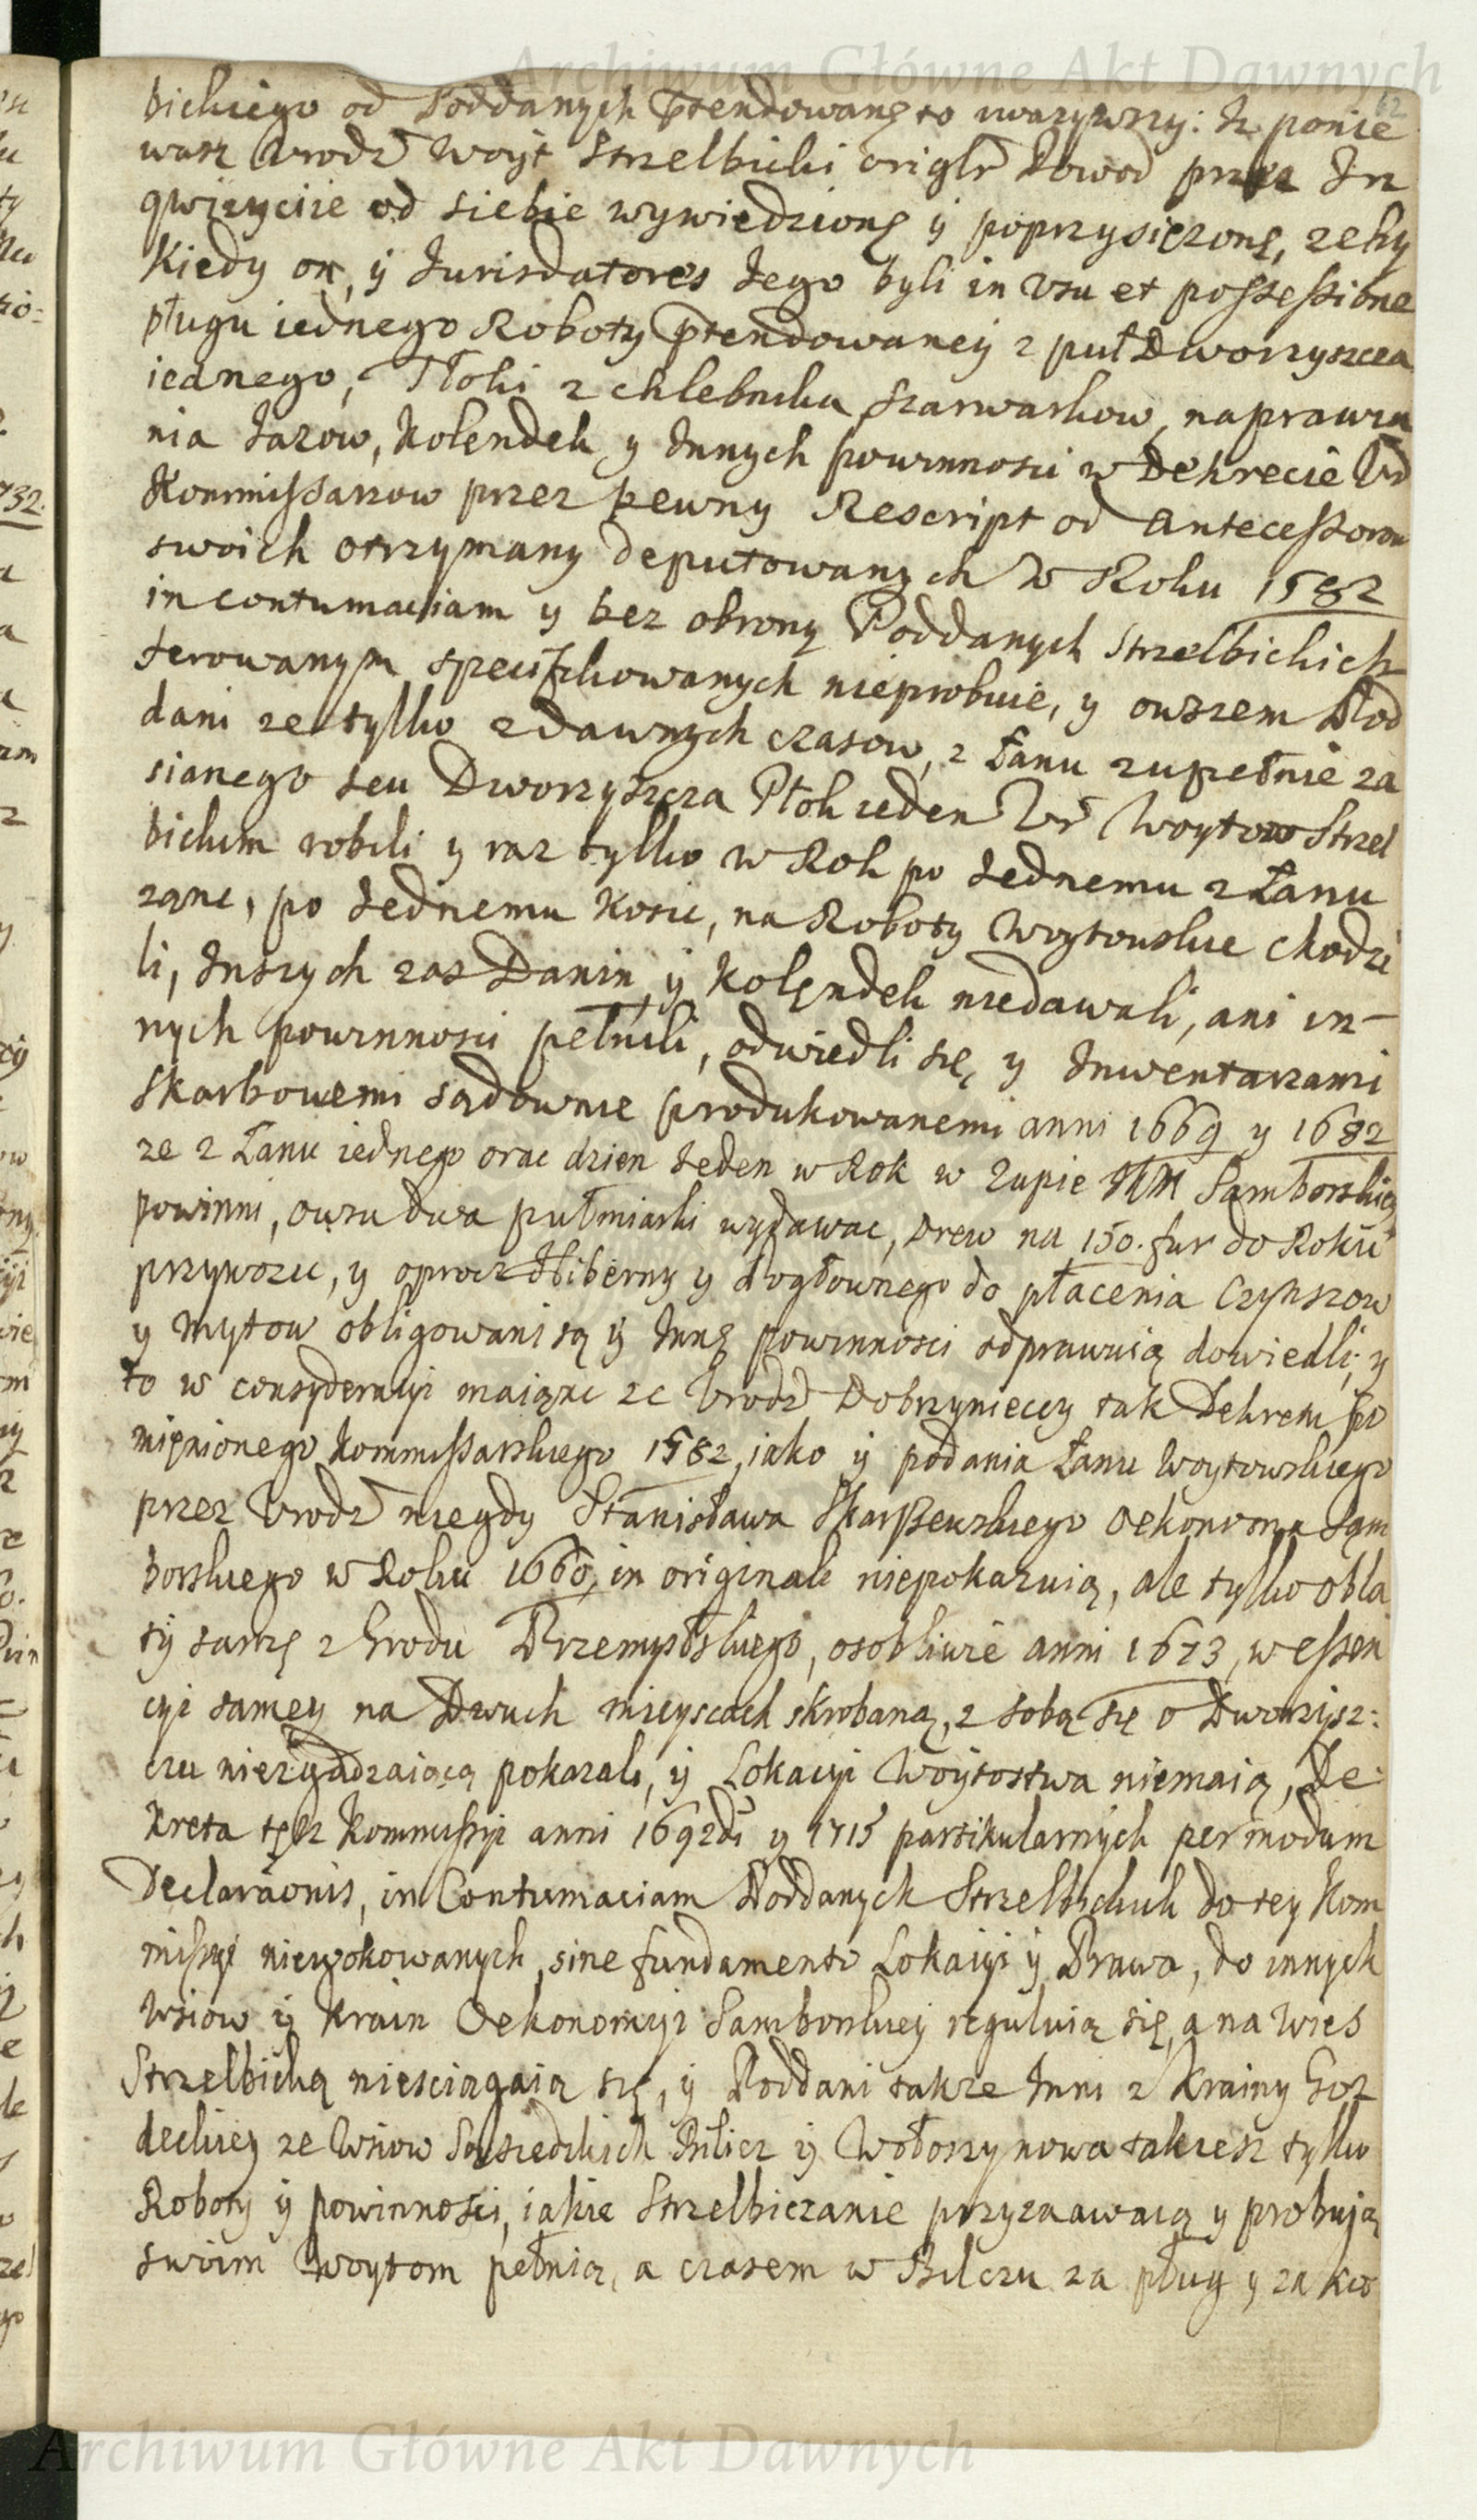 Archiwum Główne Akt Dawnych
62
bickiego od Poddanych ptendowanę to uwazywszy: Iz ponie
wasz Urodz Woyt Strzelbicki origlr Dowod przez In
qwizycije od siebie wywiedzionę ÿ poprzysięzonę, zeby
kiedy on, ÿ Jurisdatores Jego byli in Usu et possessione
pługu iednego Roboty ptendowaneÿ z puł Dworzyszcza
iednego, Tłoki z chlebnika Szarwarkow, naprawia
nia Jazow, Kolendek y Innych powinnosci w Dekrecie Ur
Kommissarzow przez pewny Rescript od Antecessorow
swoich otrzymany deputowanych w Roku 1582
in contumaciam y bez obrony Poddanych Strzelbickich
ferowanym specifikowanych nieprobuie, y owszem Pod
dani ze tylko z dawnych czasow, z Łanu zupełnie za
sianego seu Dworzyszcza Płok ieden Ur Woytow Strzel
bickim robili y raz tylko w Rok po Jednemu z Łanu
ząnc, po Jednemu Kosic, na Roboty Woytowskie chodzi
li, Inszych zas Danin ÿ Kolęndek niedawali, ani in-
nych powinnosci pełnili, odwiedli się, y Inwentarzami
Skarbowemi sądownie produkowanemi anni 1669 y 1682
ze z Łanu iednego orac dzien Jeden w Rok w Zupie JKM Samborskiey
powinni, owsa dwa pułmiarki wydawac, Drew na 150. fur do Roku
przywozic, y oprocz Hiberny y Pogłownego do płacenia Czynszow
y Mytow obligowani są ÿ Innę powinnosci odprawuią dowiedli; y
to w consyderacyi maiąnc ze Urodz Dobrzynieccy tak Dekretu po
mięnionego Kommissarskiego 1582, iako ÿ podania Łanu Woytowskiego
przez Urodz niegdy Stanisława Skarszewskiego Oekonoma Sam
borskiego w Roku 1660, in originali niepokazuią, ale tylko obla
tÿ samę z Grodu Przemyslskiego, osobliwie anni 1673, w essen
cyi samey na Dwuch mieyscach skrobaną, z sobą się o Dworzysz:
czu niezgadzaiącą pokazali, ÿ Lokacyi Woÿtostwa niemaią, De:
kreta tęsz Kommissyi anni 1692di y 1715 partikularnych per modum
Declaraonis, in Contumaciam Poddanych Strzelbickich do tey Kom
missyi niewokowanych, sine fundamento Lokacyi ÿ Prawa, do innych
Wsiow ÿ Krain Oekonomiyi Samborskiey reguluią się, a na Wies
Strzelbicką niesciągaią się, ÿ Poddani takze Inni z Krainy Goz
deckiey ze Wsiow Sąsiedzkich Bilicz ÿ Wołoszynowa takiesz tylko
Roboty ÿ powinnosci, iakie Strzelbiczanie przyznawaią y probują
swoim Woytom pełnią, a czasem w Bilczu za pług y za ko
Archiwum Główne Akt Dawnych